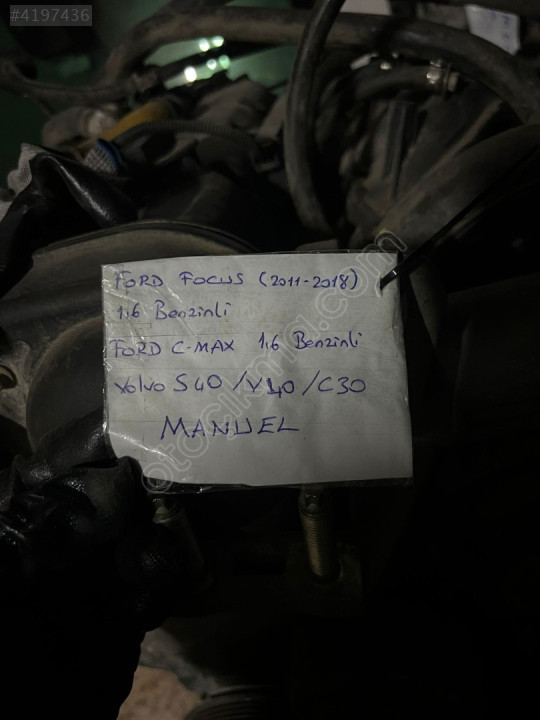 #4197436
FORD FOCUS (2011-2018)
1,6 Benzinli
FORD C-MAX 1,6 Benzinli
Volvo S40 / V40 / C30
MANUEL
otocikma.com